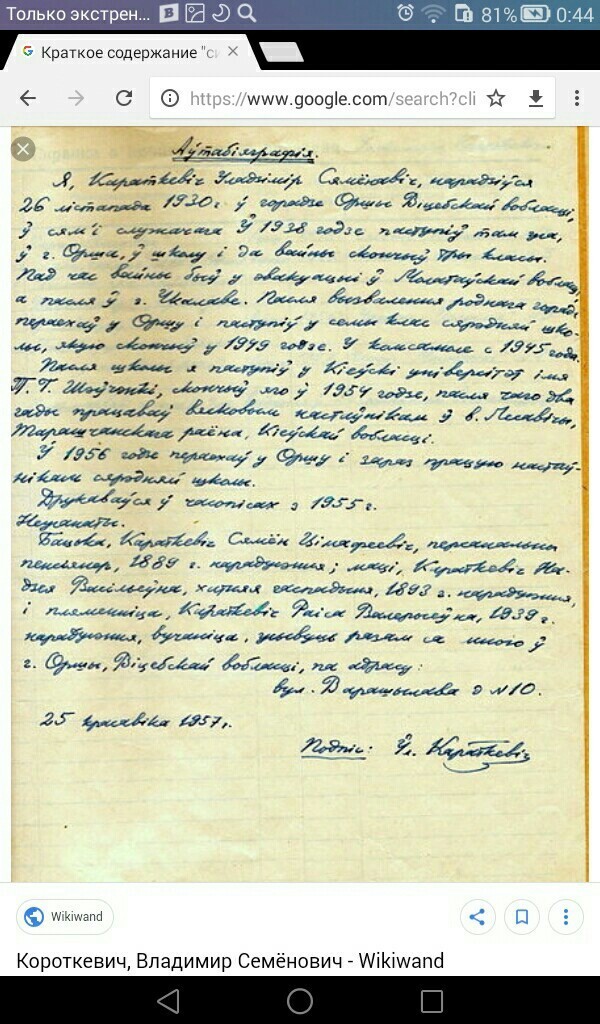 Только экстрен...
81%
0:44
Краткое содержание "си
https://www.google.com/search?cli
Аўтабіяграфія.
Я, Караткевіч Уладзімір Сямёнавіч, нарадзіўся
26 лістапада 1930 г ў горадзе Оршы Віцебскай вобласці,
ў сям'і служачага Ў 1938 годзе паступіў там жа,
ў г. Орша, ў школу і да вайны скончыў тры класы.
Пад час вайны быў у эвакуацыі ў Молатаўскай вобласці,
а пасля ў г. Чкалаве. Пасля вызвалення роднага горада
пераехаў у Оршу і паступіў у семы клас сярэдняй шко-
лы, якую скончыў у 1949 годзе. У камсамоле с 1945 года.
Пасля школы я паступіў у Кіеўскі універсітэт імя
Т. Г. Шэўчэнкі, скончыў яго ў 1954 годзе, пасля чаго два
гады працаваў вясковым настаўнікам ў в. Лесавічы,
Тарашчанскага раёна, Кіеўскай вобласці.
Ў 1956 годзе пераехаў у Оршу і зараз працую настаў-
нікам сярэдняй школы.
Друкаваўся ў часопісах з 1955 г.
Нежанаты.
Бацька, Караткевіч Сямён Цімафеевіч, персанальны
пенсіянер, 1889 г. нараджэння; маці, Караткевіч На-
дзея Васільеўна, хатняя гаспадыня, 1893 г. нараджэння,
і пляменніца, Караткевіч Раіса Валер'еўна, 1939 г.
нараджэння, вучаніца, жывуць разам са мною ў
г. Оршы, Віцебскай вобласці, па адрасу:
вул. Варашылава д №10.
25 красавіка 1957 г.
Подпіс: Ўл. Караткевіч
Wikiwand
Короткевич, Владимир Семёнович - Wikiwand